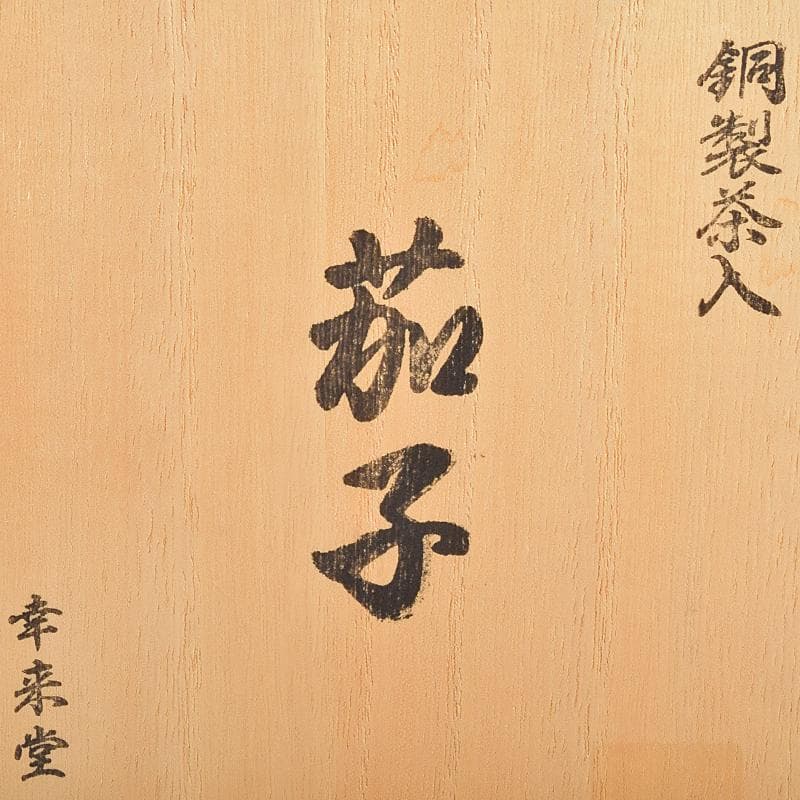 銅製茶入
茄子
幸来堂